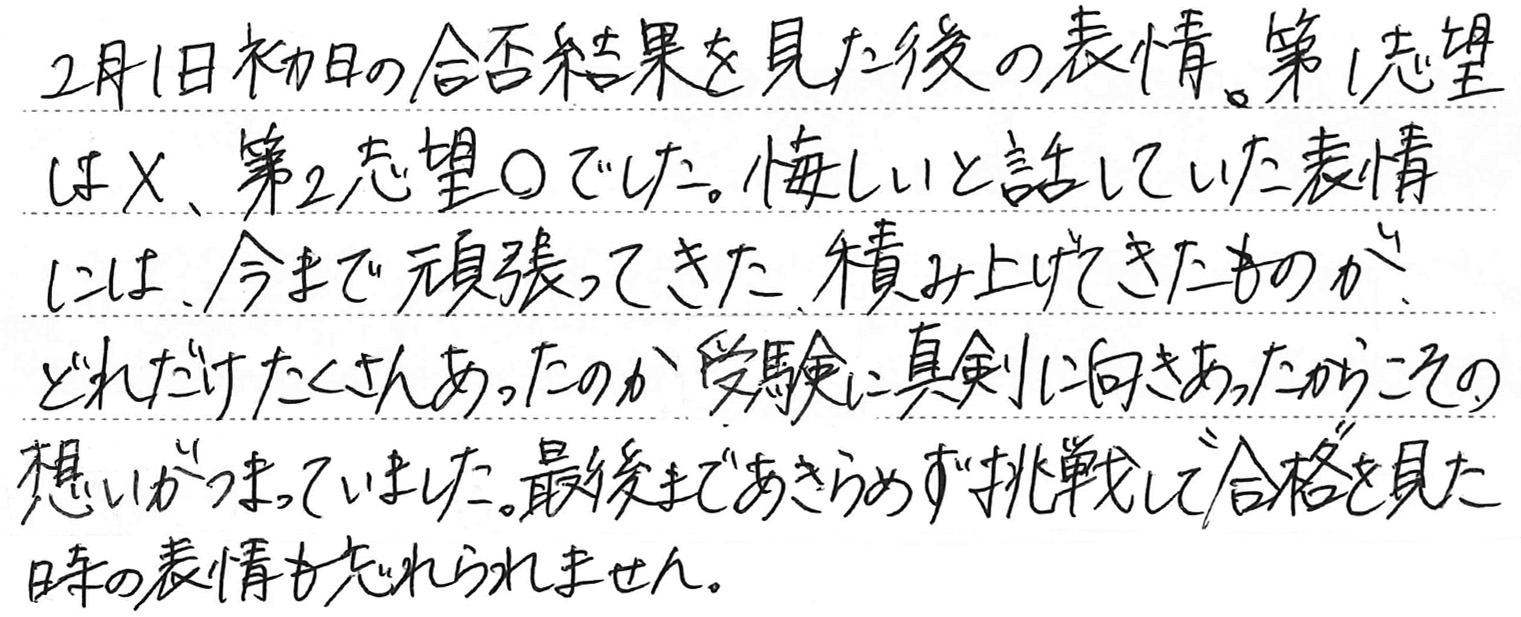 2月1日初日の合否結果を見た後の表情。第1志望
は×、第2志望○でした。悔しいと話していた表情
には、今まで頑張ってきた、積み上げてきたものが、
どれだけたくさんあったのか受験に真剣に向きあったからこその
想いがつまっていました。最後まであきらめず挑戦して"合格"を見た
時の表情も忘れられません。